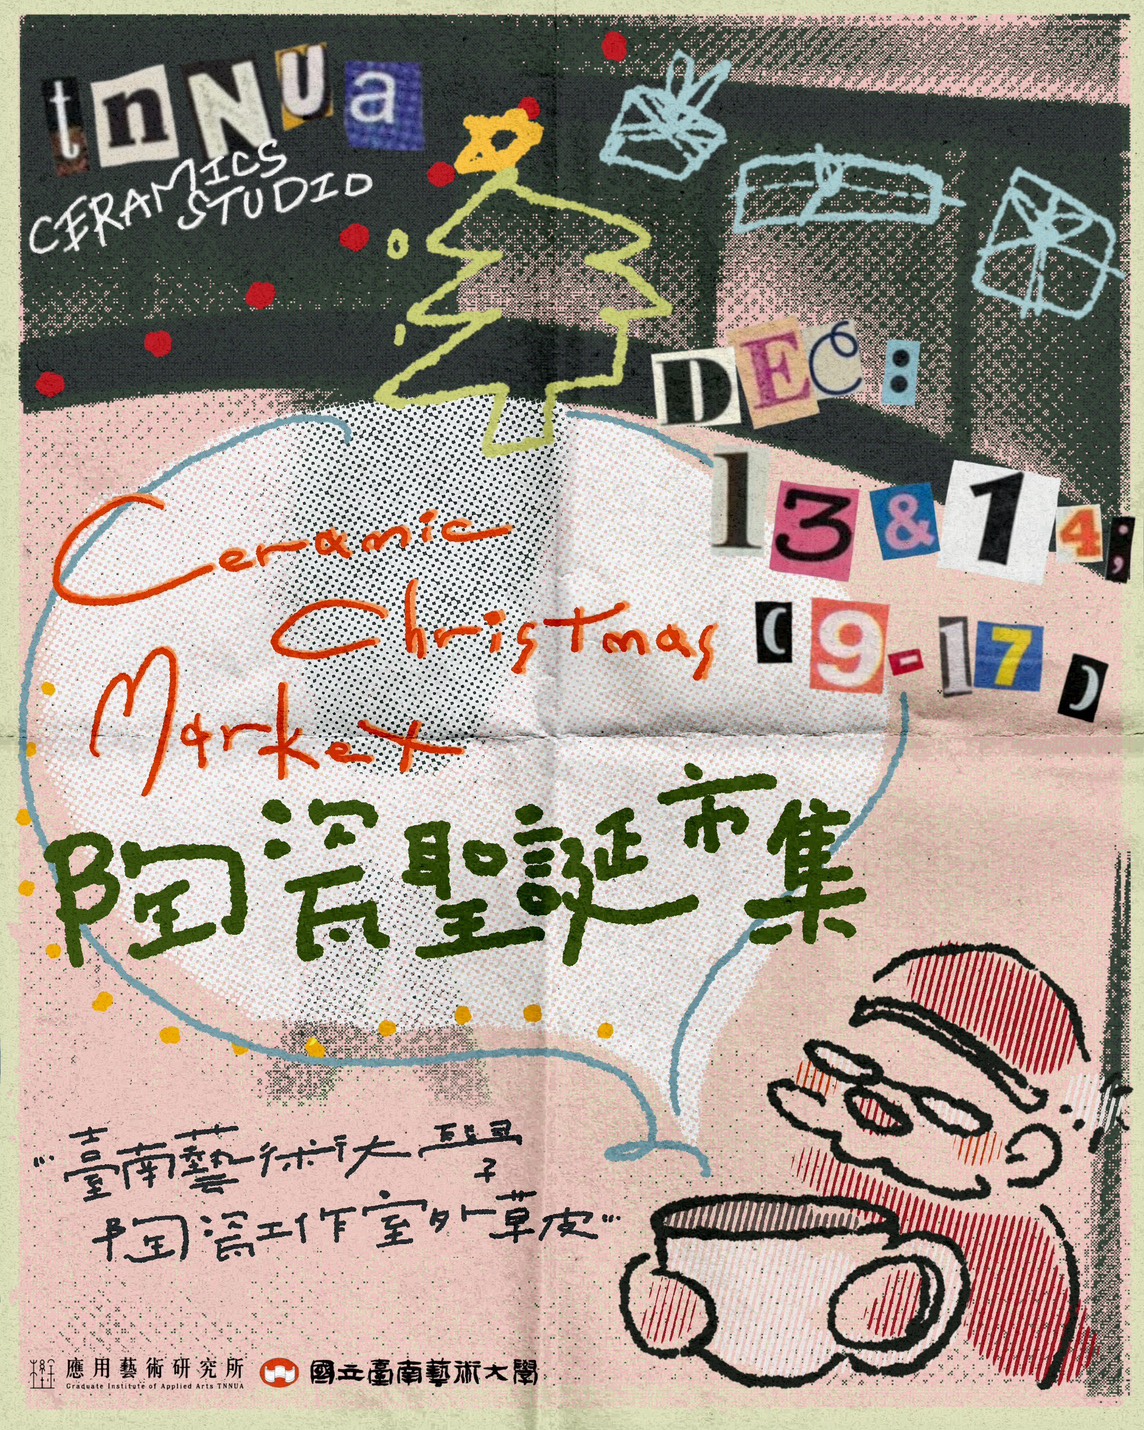 tnNUa
CERAMICS
STUDIO
DEC:
13&14;
(9-17)
Ceramic
Christmas
Market
陶瓷聖誕市集
"臺南藝術大學
陶瓷工作室外草皮"
應用藝術研究所
Graduate Institute of Applied Arts TNNUA
國立臺南藝術大學